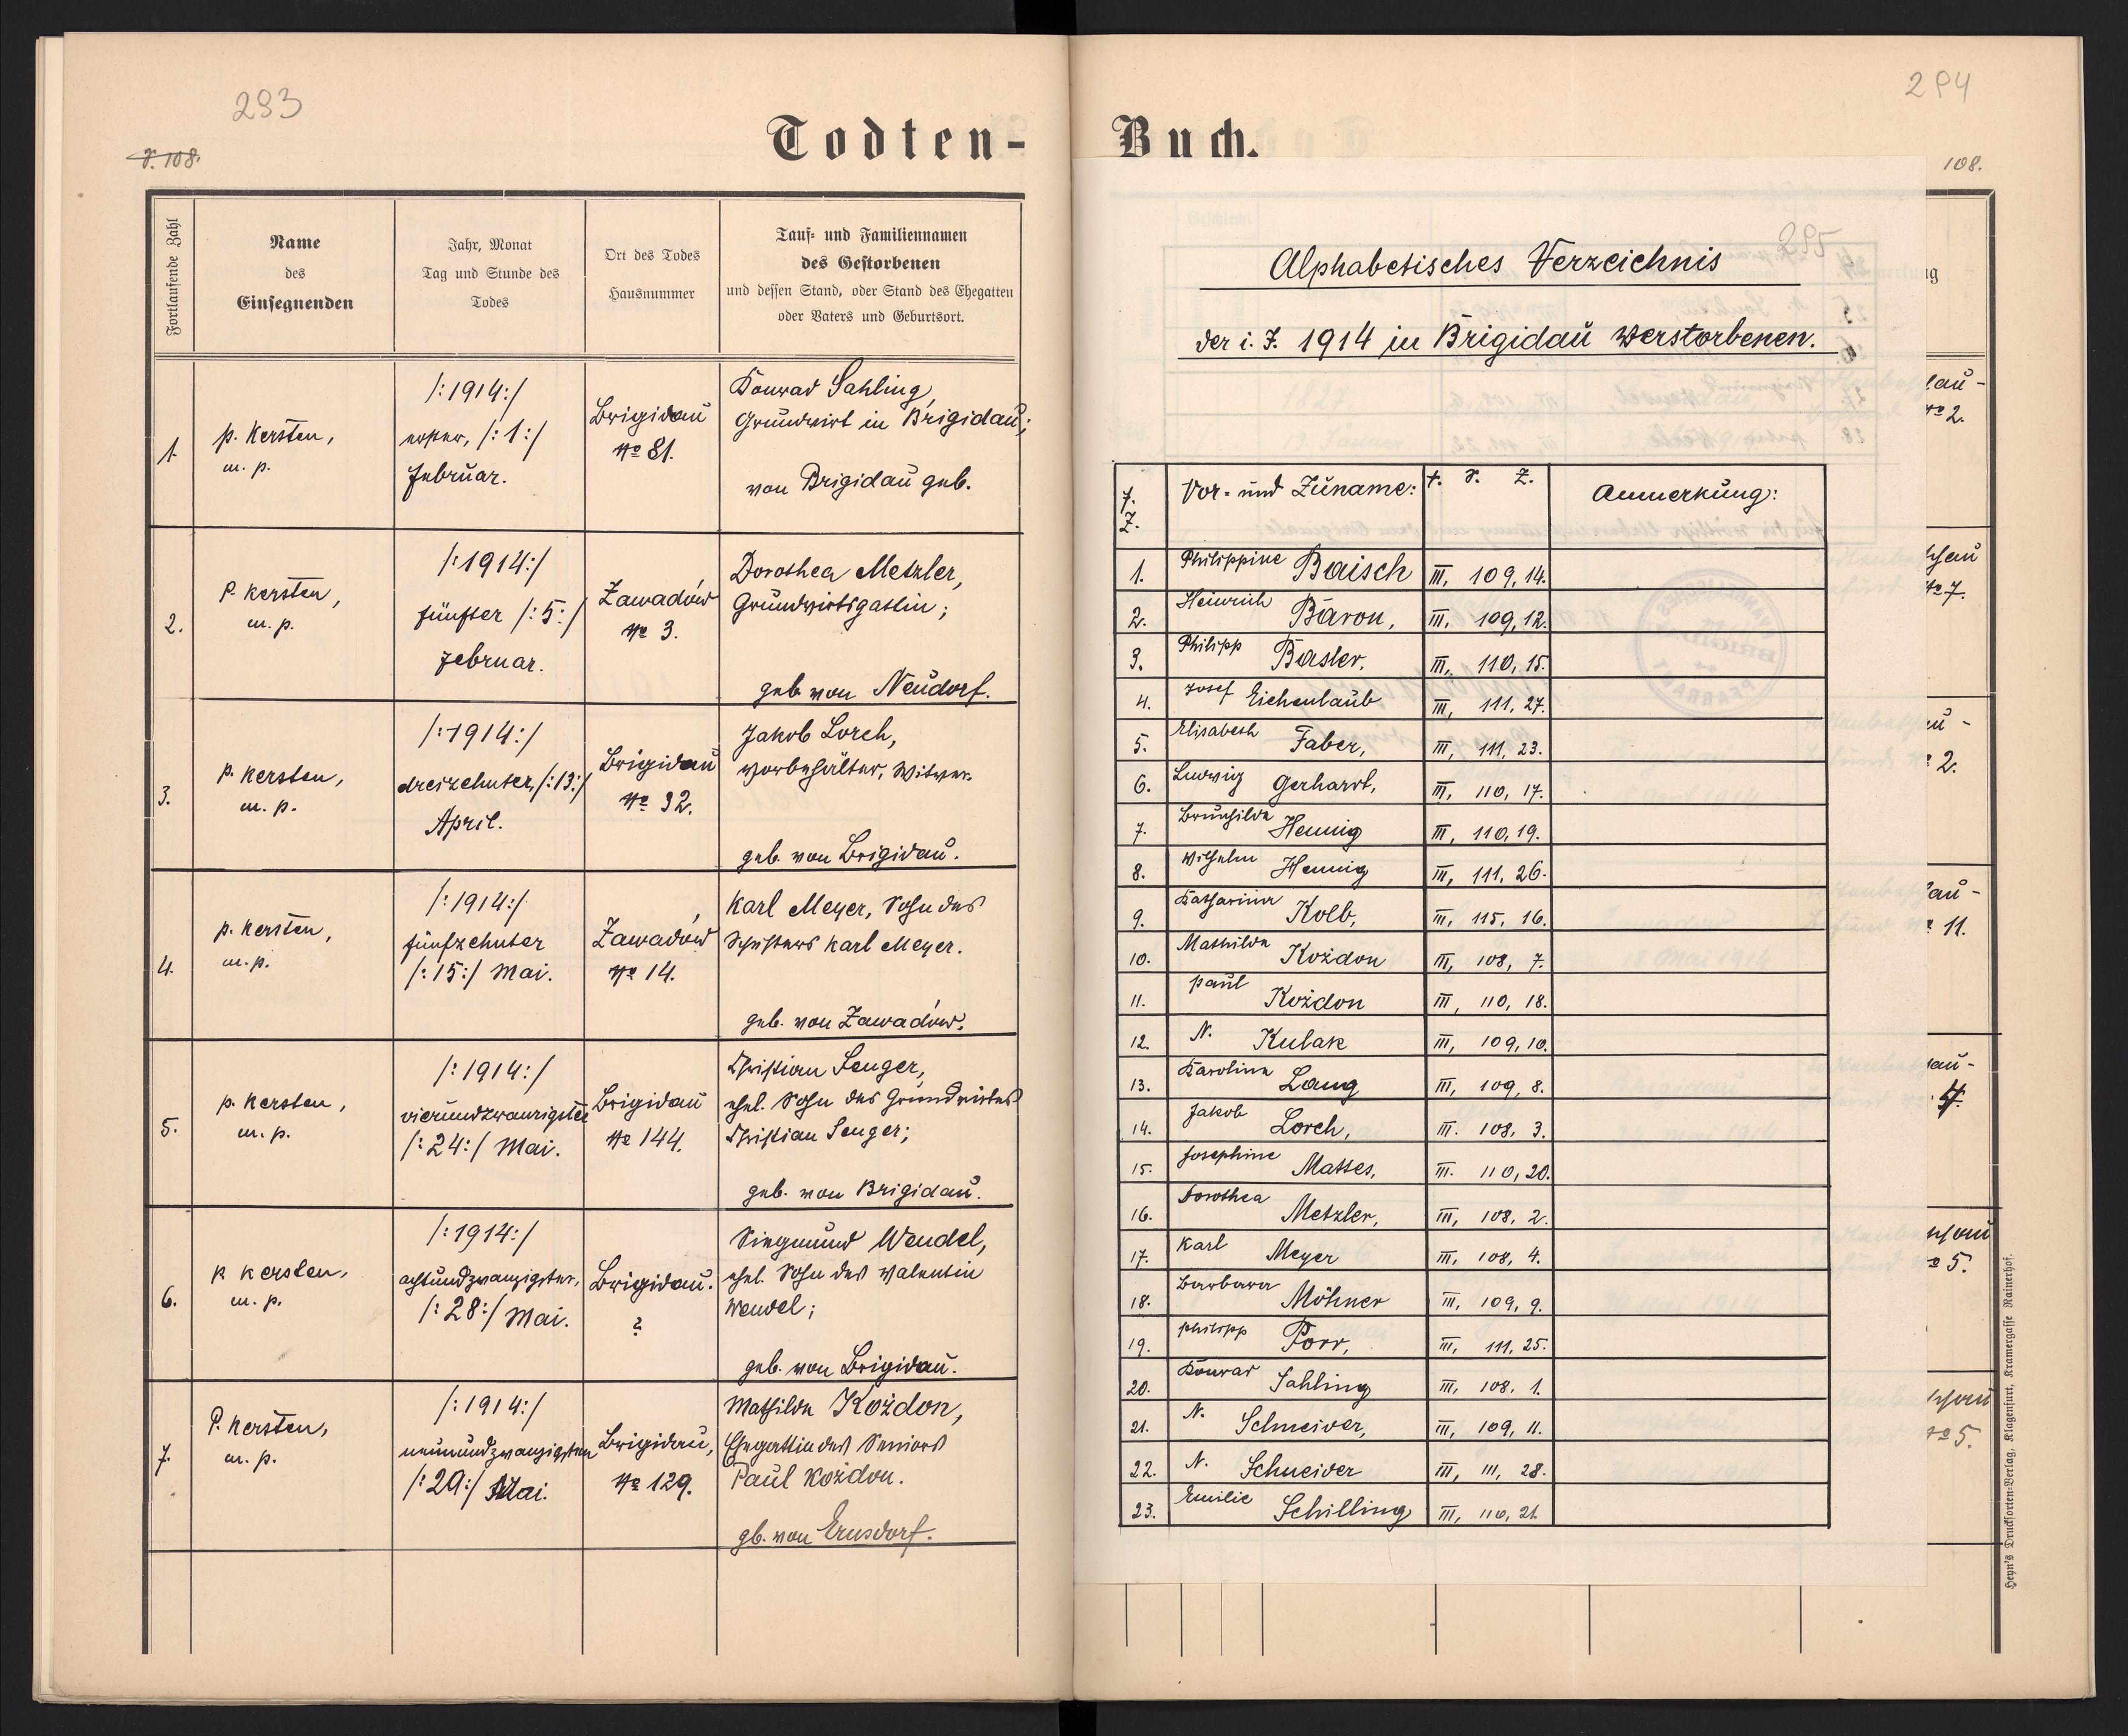 293
S. 108.
Todten-
Fortlaufende Zahl
Name
des
Einsegnenden
Jahr, Monat
Tag und Stunde des
Todes
Ort des Todes
Hausnummer
Tauf- und Familiennamen
des Gestorbenen
und dessen Stand, oder Stand des Ehegatten
oder Vaters und Geburtsort.
1.
P. Kersten,
m. p.
/:1914:/
erster, /:1:/
Februar.
Brigidau
No 81.
Konrad Sahling,
Grundwirt in Brigidau;
von Brigidau geb.
2.
P. Kersten,
m. p.
/:1914:/
fünfter /:5:/
Februar.
Zawadów
No 3.
Dorothea Metzler,
Grundwirtsgattin;
geb. von Neudorf.
3.
P. Kersten,
m. p.
/:1914:/
dreizehnter, /:13:/
April.
Brigidau
No 92.
Jakob Lorch,
Vorbehälter, Witwer.
geb. von Brigidau.
4.
P. Kersten,
m. p.
/:1914:/
fünfzehnter
/:15:/ Mai.
Zawadów
No 14.
Karl Meyer, Sohn des
Schusters Karl Meyer.
geb. von Zawadów.
5.
P. Kersten,
m. p.
/:1914:/
vierundzwanzigster
/:24:/ Mai.
Brigidau
No 144.
Christian Senger,
ehel. Sohn des Grundwirtes
Christian Senger;
geb. von Brigidau.
6.
P. Kersten,
m. p.
/:1914:/
achtundzwanzigster,
/:28:/ Mai.
Brigidau.
?
Siegmund Wendel,
ehel. Sohn des Valentin
Wendel;
geb. von Brigidau.
7.
P. Kersten,
m. p.
/:1914:/
neunundzwanzigsten
/:29:/ Mai.
Brigidau,
No 129.
Mathilde Kożdon,
Ehegattin des Seniors
Paul Kożdon.
gb. von Ernsdorf.
294
Buch.
108.
295
Alphabetisches Verzeichnis
der i. J. 1914 in Brigidau Verstorbenen.
F. Z.
Vor- und Zuname:
t. S. Z.
Anmerkung:
1. Philippine Baisch III, 109, 14.
2. Heinrich Baron, III, 109, 12.
3. Philipp Basler. III, 110, 15.
4. Josef Eichenlaub III, 111, 27.
5. Elisabeth Faber, III, 111, 23.
6. Ludwig Gerhardt, III, 110, 17.
7. Brunhilde Hennig III, 110, 19.
8. Wilhelm Hennig III, 111, 26.
9. Katharina Kolb, III, 115, 16.
10. Mathilde Kożdon III, 108, 7.
11. Paul Kożdon III, 110, 18.
12. N. Kulak III, 109, 10.
13. Karolina Lang III, 109, 8.
14. Jakob Lorch, III. 108, 3.
15. Josephine Mattes, III. 110, 20.
16. Dorothea Metzler, III, 108, 2.
17. Karl Meyer III, 108, 4.
18. Barbara Möhner III, 109, 9.
19. Philipp Porr, III, 111, 25.
20. Konrad Sahling III, 108, 1.
21. N. Schneider, III, 109, 11.
22. N. Schneider III, 111, 28.
23. Emilie Schilling III, 110, 21.
No 2.
No 7.
2.
11.
4.
5.
No 5.
Heyn's Drucksorten-Verlag, Klagenfurt, Kramergasse Rainerhof.